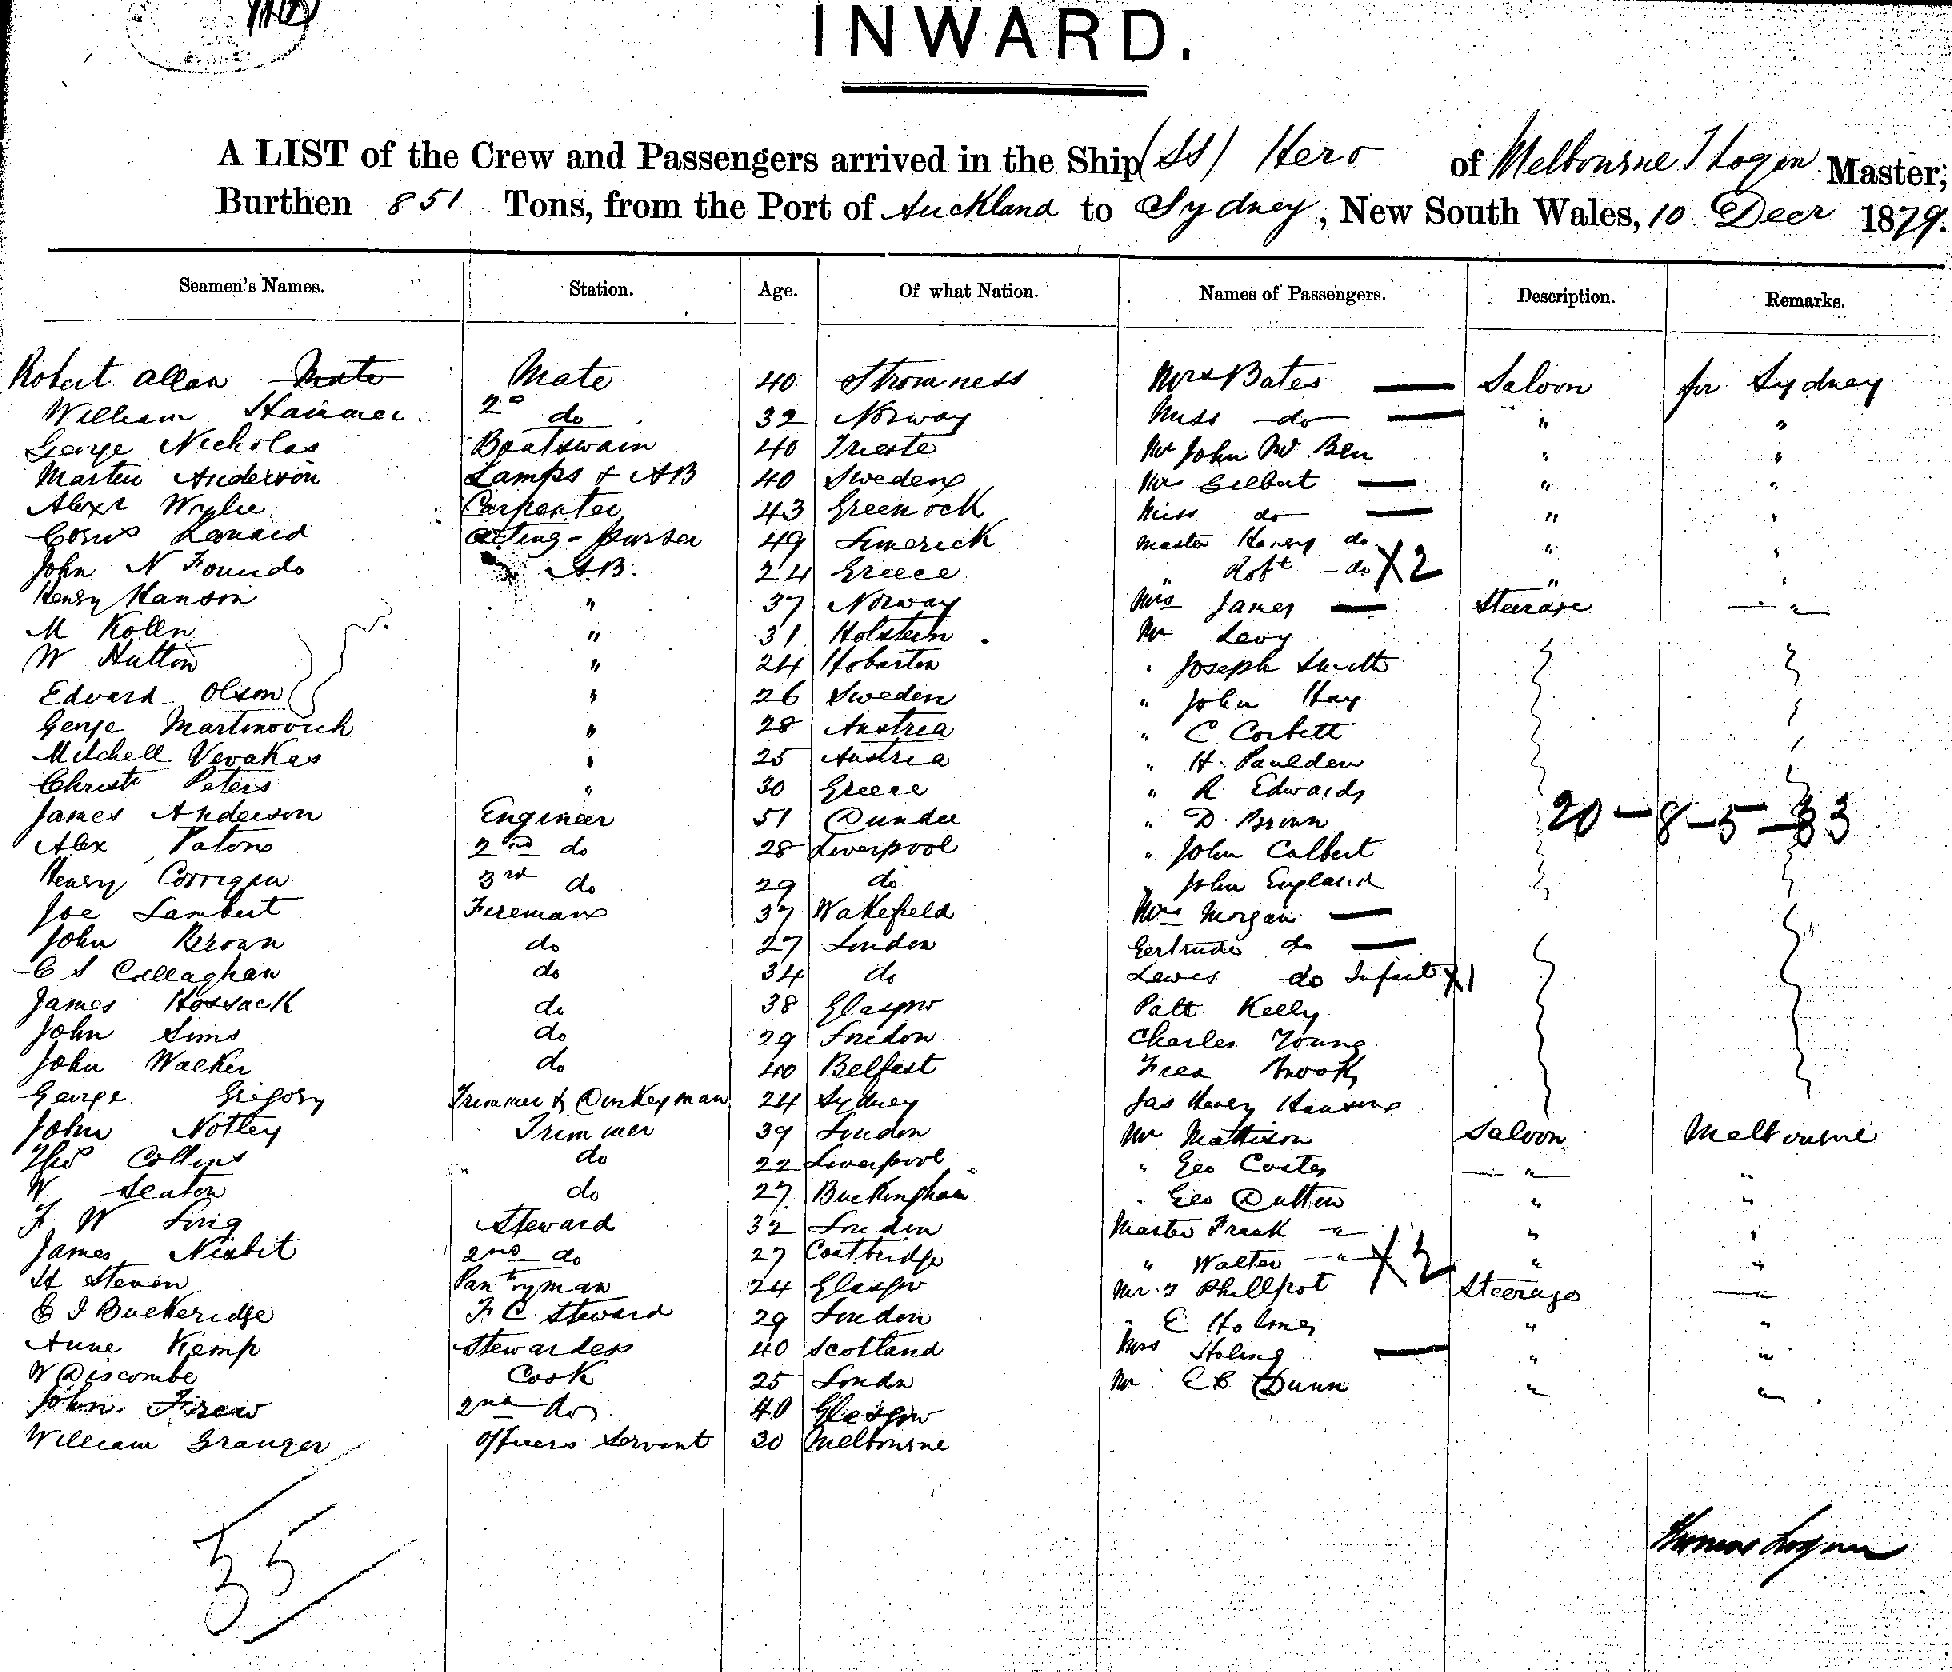 INWARD.
A LIST of the Crew and Passengers arrived in the Ship (SS) Hero of Melbourne T Logan Master,
Burthen 851 Tons, from the Port of Auckland to Sydney, New South Wales, 10 Decr 1879.
Seamen's Names. Station. Age. Of what Nation. Names of Passengers. Description. Remarks.
Robert Allan Mate Mate 40 Stromness Mrs Bates Saloon for Sydney
William 2nd do 32 Norway Miss do " "
George Nicholas Boatswain 40 Trieste Mr John Mc Ben " "
Martin Anderson Lamps & AB 40 Sweden Mrs Gilbert " "
Alexr Wylie Carpenter 43 Greenock Miss do " "
Lenard Acting-Purser 49 Limerick Master Henry do " "
John N Foundo AB. 24 Greece Robt do X2 " "
Henry Hanson " 37 Norway Mrs James Steerage "
M Kolln " 31 Holstein Mr Levy
W Hutton " 24 Hobarton " Joseph Smith
Edward Olson " 26 Sweden " John Hay
George Martinovich " 28 Austria " C Corbett
Mitchell Vevakas " 25 Austria " H. Paulden
Christi Peters " 30 Greece " R Edwards
James Anderson Engineer 51 Dundee " D. Brown 20-8-5-33
Alex Paton 2nd do 28 Liverpool " John Calbert
Henry Corrigan 3rd do 29 do " John England
Joe Lambert Fireman 37 Wakefield Mrs Morgan
John Brown do 27 London Gertrude do
C S Callaghan do 34 do Lewis do Infant X1
James Hossack do 38 Glasgow Patt Kelly
John Sims do 29 London Charles Young
John Walker do 40 Belfast Fred Brook
George Gregory Trimmer & Donkeyman 24 Sydney Jas Henry
John Notley Trimmer 39 London Mr Mattison Saloon Melbourne
Thos Collins do 22 Liverpool " Geo Coates " "
W Seaton do 27 Buckingham " Geo Dutton " "
F W Long Steward 32 London Master Frank " " "
James Nisbit 2nd do 27 Coatbridge " Walter " X2 " "
H Steven Pantryman 24 Glasgow Mr Phillpot Steerage "
E J Buckeridge F C Steward 29 London " E Holmes " "
Anne Kemp Stewardess 40 Scotland Mrs " "
W Discombe Cook 25 London Mr C B Dunn " "
John Firew 2nd do 40 Glasgow
William Granger Officers Servant 30 Melbourne
35
Thomas Logan